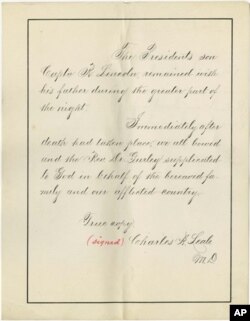 The Presidents son
Captn R. Lincoln remained with
his father during the greater part of
the night
Immediately after
death had taken place, we all bowed
and the Rev. Dr. Gurley supplicated
to God in behalf of the bereaved fa-
mily and our afflicted country.
True copy
(signed) Charles A. Leale
M.D.
AP